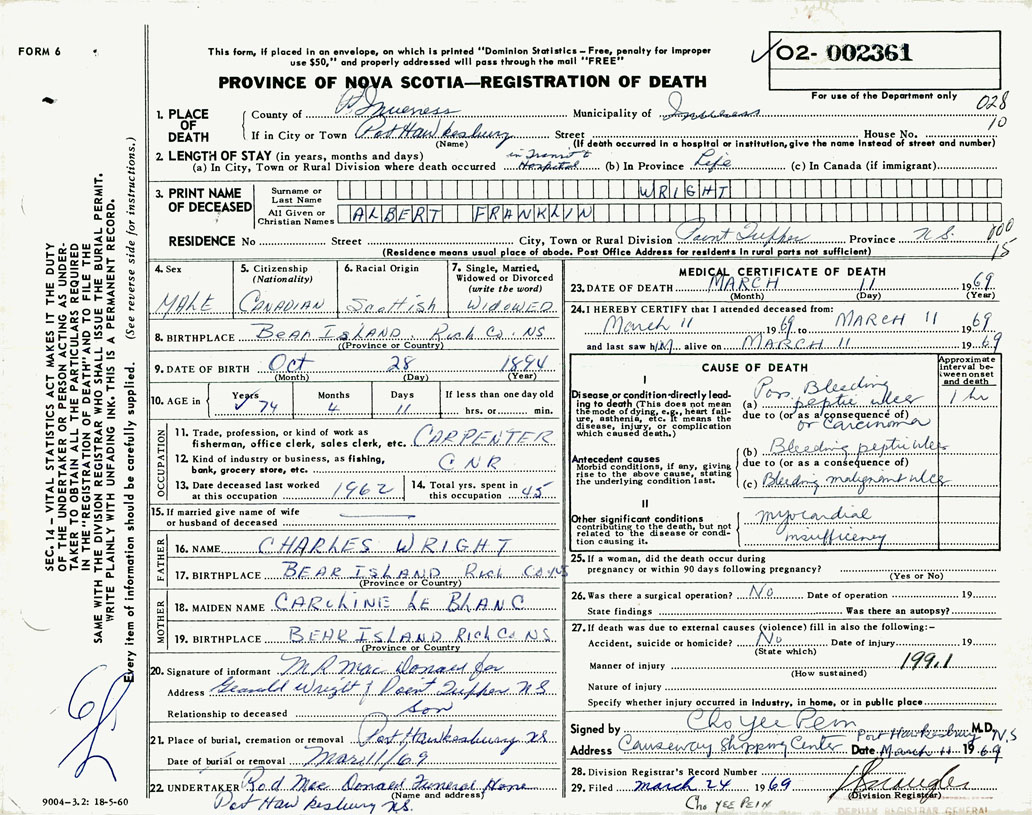 FORM 6
This form, if placed in an envelope, on which is printed "Dominion Statistics – Free, penalty for improper
use $50," and properly addressed will pass through the mail "FREE"
PROVINCE OF NOVA SCOTIA—REGISTRATION OF DEATH
✓ 02- 002361
For use of the Department only
028
10
1. PLACE OF DEATH
County of Inverness Municipality of Inverness
If in City or Town Port Hawkesbury Street House No.
(Name) (If death occurred in a hospital or institution, give the name instead of street and number)
2. LENGTH OF STAY (in years, months and days)
(a) In City, Town or Rural Division where death occurred in Transit to Hospital (b) In Province Life (c) In Canada (if immigrant)
3. PRINT NAME OF DECEASED
Surname or Last Name WRIGHT
All Given or Christian Names ALBERT FRANKLIN
RESIDENCE No Street City, Town or Rural Division Point Tupper Province N.S.
(Residence means usual place of abode. Post Office Address for residents in rural parts not sufficient)
000
15
4. Sex MALE
5. Citizenship (Nationality) CANADIAN
6. Racial Origin Scottish
7. Single, Married, Widowed or Divorced (write the word) WIDOWED
8. BIRTHPLACE BEAR ISLAND. Rich Co. NS
(Province or Country)
9. DATE OF BIRTH Oct 28 1894
(Month) (Day) (Year)
10. AGE in Years ✓ 74 Months 4 Days 11 If less than one day old hrs. or min.
OCCUPATION
11. Trade, profession, or kind of work as
fisherman, office clerk, sales clerk, etc. CARPENTER
12. Kind of industry or business, as fishing,
bank, grocery store, etc. CNR
13. Date deceased last worked
at this occupation 1962
14. Total yrs. spent in
this occupation 45
15. If married give name of wife
or husband of deceased
FATHER
16. NAME CHARLES WRIGHT
17. BIRTHPLACE BEAR ISLAND Rich Co NS
(Province or Country)
MOTHER
18. MAIDEN NAME CAROLINE LE BLANC
19. BIRTHPLACE BEAR ISLAND Rich Co NS
(Province or Country)
20. Signature of informant M R Mac Donald for
Address Wright Point Tupper NS
Relationship to deceased Son
21. Place of burial, cremation or removal Port Hawkesbury NS
Date of burial or removal Mar 11/69
22. UNDERTAKER Rod Mac Donald Funeral Home
(Name and address)
Port Hawkesbury NS.
9004–3.2: 18-5-60
MEDICAL CERTIFICATE OF DEATH
23. DATE OF DEATH MARCH 11 1969
(Month) (Day) (Year)
24. I HEREBY CERTIFY that I attended deceased from:
March 11 1969 to MARCH 11 1969
and last saw him alive on MARCH 11 1969
CAUSE OF DEATH
Approximate interval between onset and death
I
Disease or condition directly leading to death (This does not mean
the mode of dying, e.g., heart failure, asthenia, etc. It means the
disease, injury, or complication
which caused death.)
(a) Poss. Bleeding peptic ulcer or carcinoma
1 hr
due to (or as a consequence of)
Antecedent causes
Morbid conditions, if any, giving
rise to the above cause, stating
the underlying condition last.
(b) Bleeding peptic ulcer
due to (or as a consequence of)
(c) Bleeding malignant ulcer
II
Other significant conditions
contributing to the death, but not
related to the disease or condition causing it.
myocardial
insufficiency
25. If a woman, did the death occur during
pregnancy or within 90 days following pregnancy?
(Yes or No)
26. Was there a surgical operation? No Date of operation 19
State findings Was there an autopsy?
27. If death was due to external causes (violence) fill in also the following:–
Accident, suicide or homicide? No Date of injury 19
(State which)
Manner of injury 199.1
(How sustained)
Nature of injury
Specify whether injury occurred in Industry, in home, or in public place
Signed by Cho Yee Pein M.D.
Address Causeway Shopping Center Port Hawkesbury N.S Date March 11 1969
28. Division Registrar's Record Number
29. Filed march 24 1969
(Division Registrar)
CHO YEE PEIN
DEPUTY REGISTRAR GENERAL
SEC. 14 – VITAL STATISTICS ACT MAKES IT THE DUTY
OF THE UNDERTAKER OR PERSON ACTING AS UNDER-
TAKER TO OBTAIN ALL THE PARTICULARS REQUIRED
IN THE "REGISTRATION OF DEATH" AND TO FILE THE
SAME WITH THE DIVISION REGISTRAR WHO SHALL ISSUE THE BURIAL PERMIT.
WRITE PLAINLY WITH UNFADING INK. THIS IS A PERMANENT RECORD.
Every item of information should be carefully supplied. (See reverse side for instructions.)